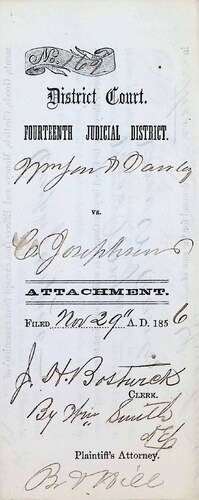 No. 169
District Court.
FOURTEENTH JUDICIAL DISTRICT.
vs.
C. Josephson
ATTACHMENT.
FILED Nov 29" A. D. 1856
J. H. Bostwick
CLERK.
By Wm Smith
Dy
Plaintiff's Attorney.
Hill